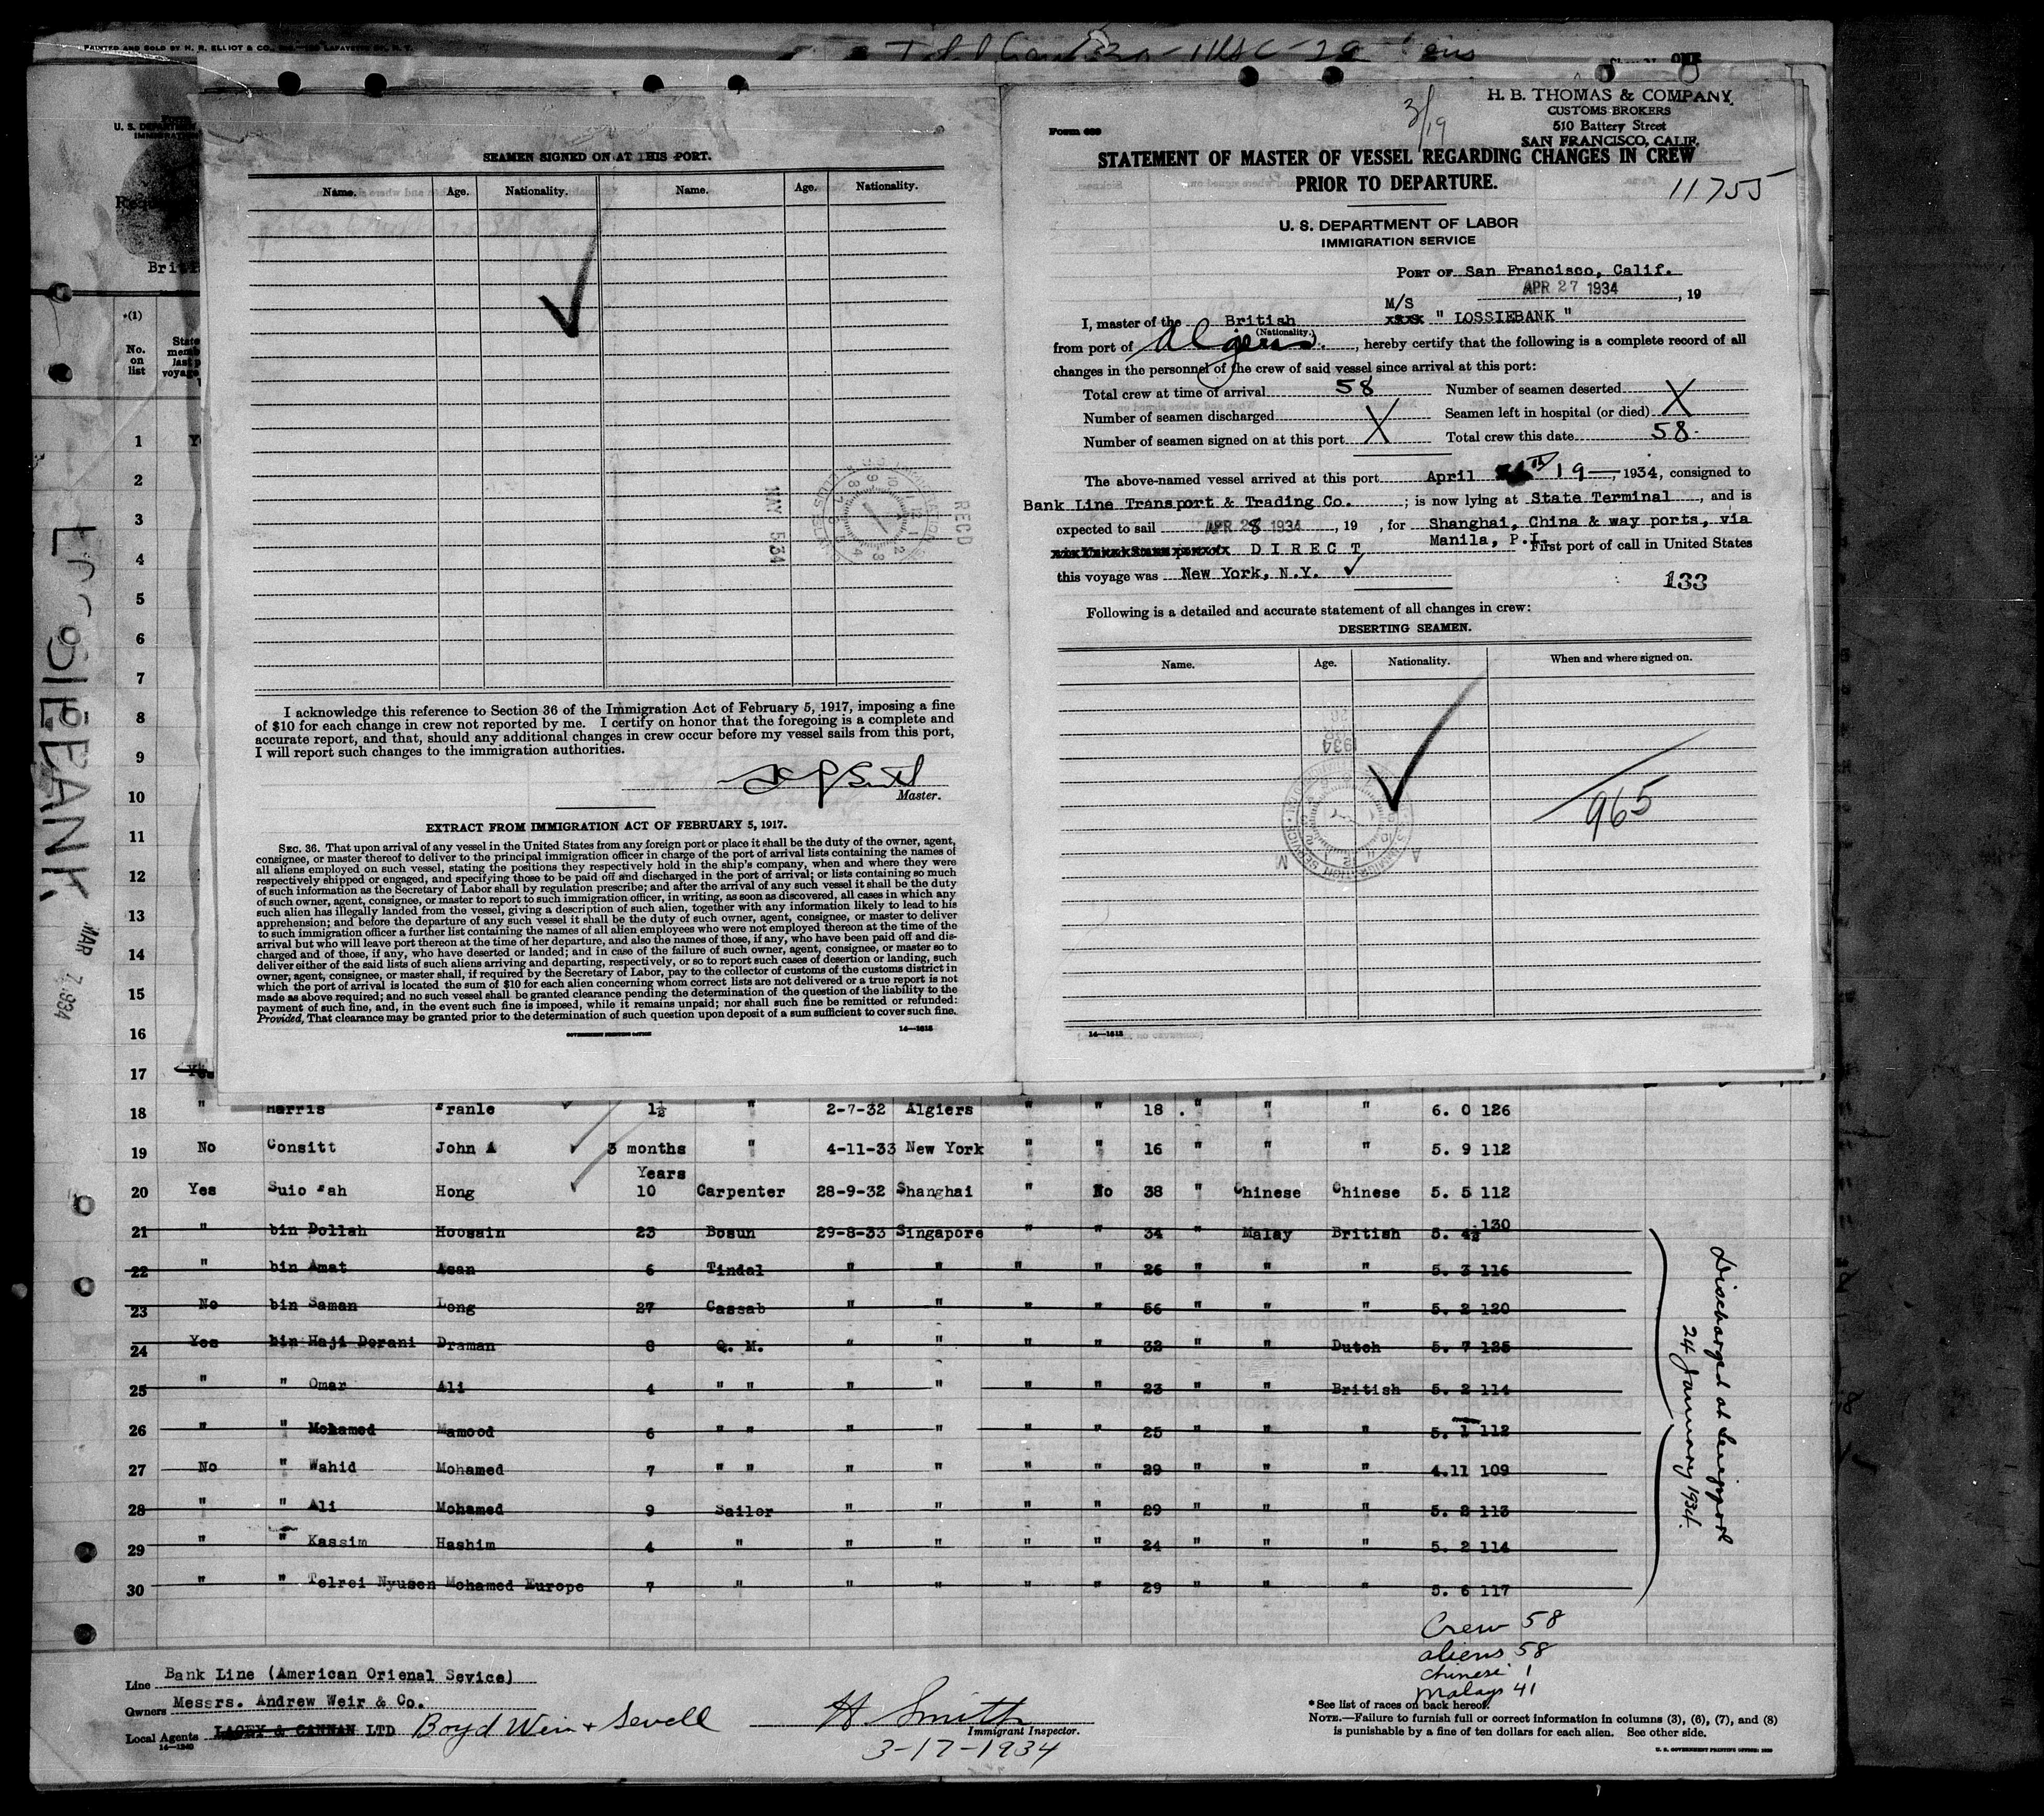 PAINTED AND SOLD BY H. R. ELLIOT & CO., LAFAYETTE ST., N. Y.
ONE
U. S. DEPARTMENT
IMMIGRATION
Brit
*(1)
No. on list
1
2
3
4
5
6
7
8
9
10
11
12
13
14
15
16
17 Yes
LOSSIEBANK
MAR 7 1934
SEAMEN SIGNED ON AT THIS PORT.
Name. Age. Nationality. Name. Age. Nationality.
RECD
MAY 5 34
I acknowledge this reference to Section 36 of the Immigration Act of February 5, 1917, imposing a fine
of $10 for each change in crew not reported by me. I certify on honor that the foregoing is a complete and
accurate report, and that, should any additional changes in crew occur before my vessel sails from this port,
I will report such changes to the immigration authorities.
Master.
EXTRACT FROM IMMIGRATION ACT OF FEBRUARY 5, 1917.
SEC. 36. That upon arrival of any vessel in the United States from any foreign port or place it shall be the duty of the owner, agent,
consignee, or master thereof to deliver to the principal immigration officer in charge of the port of arrival lists containing the names of
all aliens employed on such vessel, stating the positions they respectively hold in the ship's company, when and where they were
respectively shipped or engaged, and specifying those to be paid off and discharged in the port of arrival; or lists containing so much
of such information as the Secretary of Labor shall by regulation prescribe; and after the arrival of any such vessel it shall be the duty
of such owner, agent, consignee, or master to report to such immigration officer, in writing, as soon as discovered, all cases in which any
such alien has illegally landed from the vessel, giving a description of such alien, together with any information likely to lead to his
apprehension; and before the departure of any such vessel it shall be the duty of such owner, agent, consignee, or master to deliver
to such immigration officer a further list containing the names of all alien employees who were not employed thereon at the time of the
arrival but who will leave port thereon at the time of her departure, and also the names of those, if any, who have been paid off and dis-
charged and of those, if any, who have deserted or landed; and in case of the failure of such owner, agent, consignee, or master so to
deliver either of the said lists of such aliens arriving and departing, respectively, or so to report such cases of desertion or landing, such
owner, agent, consignee, or master shall, if required by the Secretary of Labor, pay to the collector of customs of the customs district in
which the port of arrival is located the sum of $10 for each alien concerning whom correct lists are not delivered or a true report is not
made as above required; and no such vessel shall be granted clearance pending the determination of the question of the liability to the
payment of such fine, and, in the event such fine is imposed, while it remains unpaid; nor shall such fine be remitted or refunded:
Provided, That clearance may be granted prior to the determination of such question upon deposit of a sum sufficient to cover such fine.
GOVERNMENT PRINTING OFFICE 14—1613
3/19
H. B. THOMAS & COMPANY
CUSTOMS BROKERS
510 Battery Street
SAN FRANCISCO, CALIF.
Form 689
STATEMENT OF MASTER OF VESSEL REGARDING CHANGES IN CREW
PRIOR TO DEPARTURE.
11755
U. S. DEPARTMENT OF LABOR
IMMIGRATION SERVICE
PORT OF San Francisco, Calif.
APR 27 1934, 19
I, master of the British M/S " LOSSIEBANK "
(Nationality.)
from port of Algiers, hereby certify that the following is a complete record of all
changes in the personnel of the crew of said vessel since arrival at this port:
Total crew at time of arrival 58 Number of seamen deserted X
Number of seamen discharged X Seamen left in hospital (or died)
Number of seamen signed on at this port Total crew this date 58
The above-named vessel arrived at this port April 19, 1934, consigned to
Bank Line Transport & Trading Co.; is now lying at State Terminal, and is
expected to sail APR 28 1934, 19 , for Shanghai, China & way ports, via
Manila, P.I.
DIRECT First port of call in United States
this voyage was New York, N.Y. 133
Following is a detailed and accurate statement of all changes in crew:
DESERTING SEAMEN.
Name. Age. Nationality. When and where signed on.
1934
965
14—1613
18 " Harris Franle 1½ " 2-7-32 Algiers " " 18 " " " 6. 0 126
19 No Consitt John A 3 months " 4-11-33 New York " " 16 " " " 5. 9 112
Years
20 Yes Suio Hong 10 Carpenter 28-9-32 Shanghai " No 38 " Chinese Chinese 5. 5 112
21 " bin Dollah Hoosain 23 Bosun 29-8-33 Singapore " " 34 " Malay British 5. 4½ 130
22 " bin Amat Asan 6 Tindal " " " " 26 " " " 5. 3 116
23 No bin Saman Long 27 Cassab " " " " 56 " " " 5. 2 120
24 Yes bin Haji Dorani Draman 8 Q. M. " " " " 32 " " Dutch 5. 7 125
25 " " Omar Ali 4 " " " " " " 23 " " British 5. 2 114
26 " " Mohamed Mamood 6 " " " " " " 25 " " " 5. 1 112
27 No " Wahid Mohamed 7 " " " " " " 29 " " " 4.11 109
28 " " Ali Mohamed 9 Sailor " " " " 29 " " " 5. 2 113
29 " " Kassim Hashim 4 " " " " " 24 " " " 5. 2 114
30 " " Telrei Nyusen Mohamed Europe 7 " " " " " 29 " " " 5. 6 117
Discharged at
24 January 1934.
Crew 58
aliens 58
Chinese 1
Malays 41
Line Bank Line (American Orienal Sevice)
Owners Messrs. Andrew Weir & Co.
Local Agents LACEY & CANNAN LTD Boyd Weir & Sewell
14—1240
H. Smith
Immigrant Inspector.
3-17-1934
*See list of races on back hereof.
NOTE.—Failure to furnish full or correct information in columns (3), (6), (7), and (8)
is punishable by a fine of ten dollars for each alien. See other side.